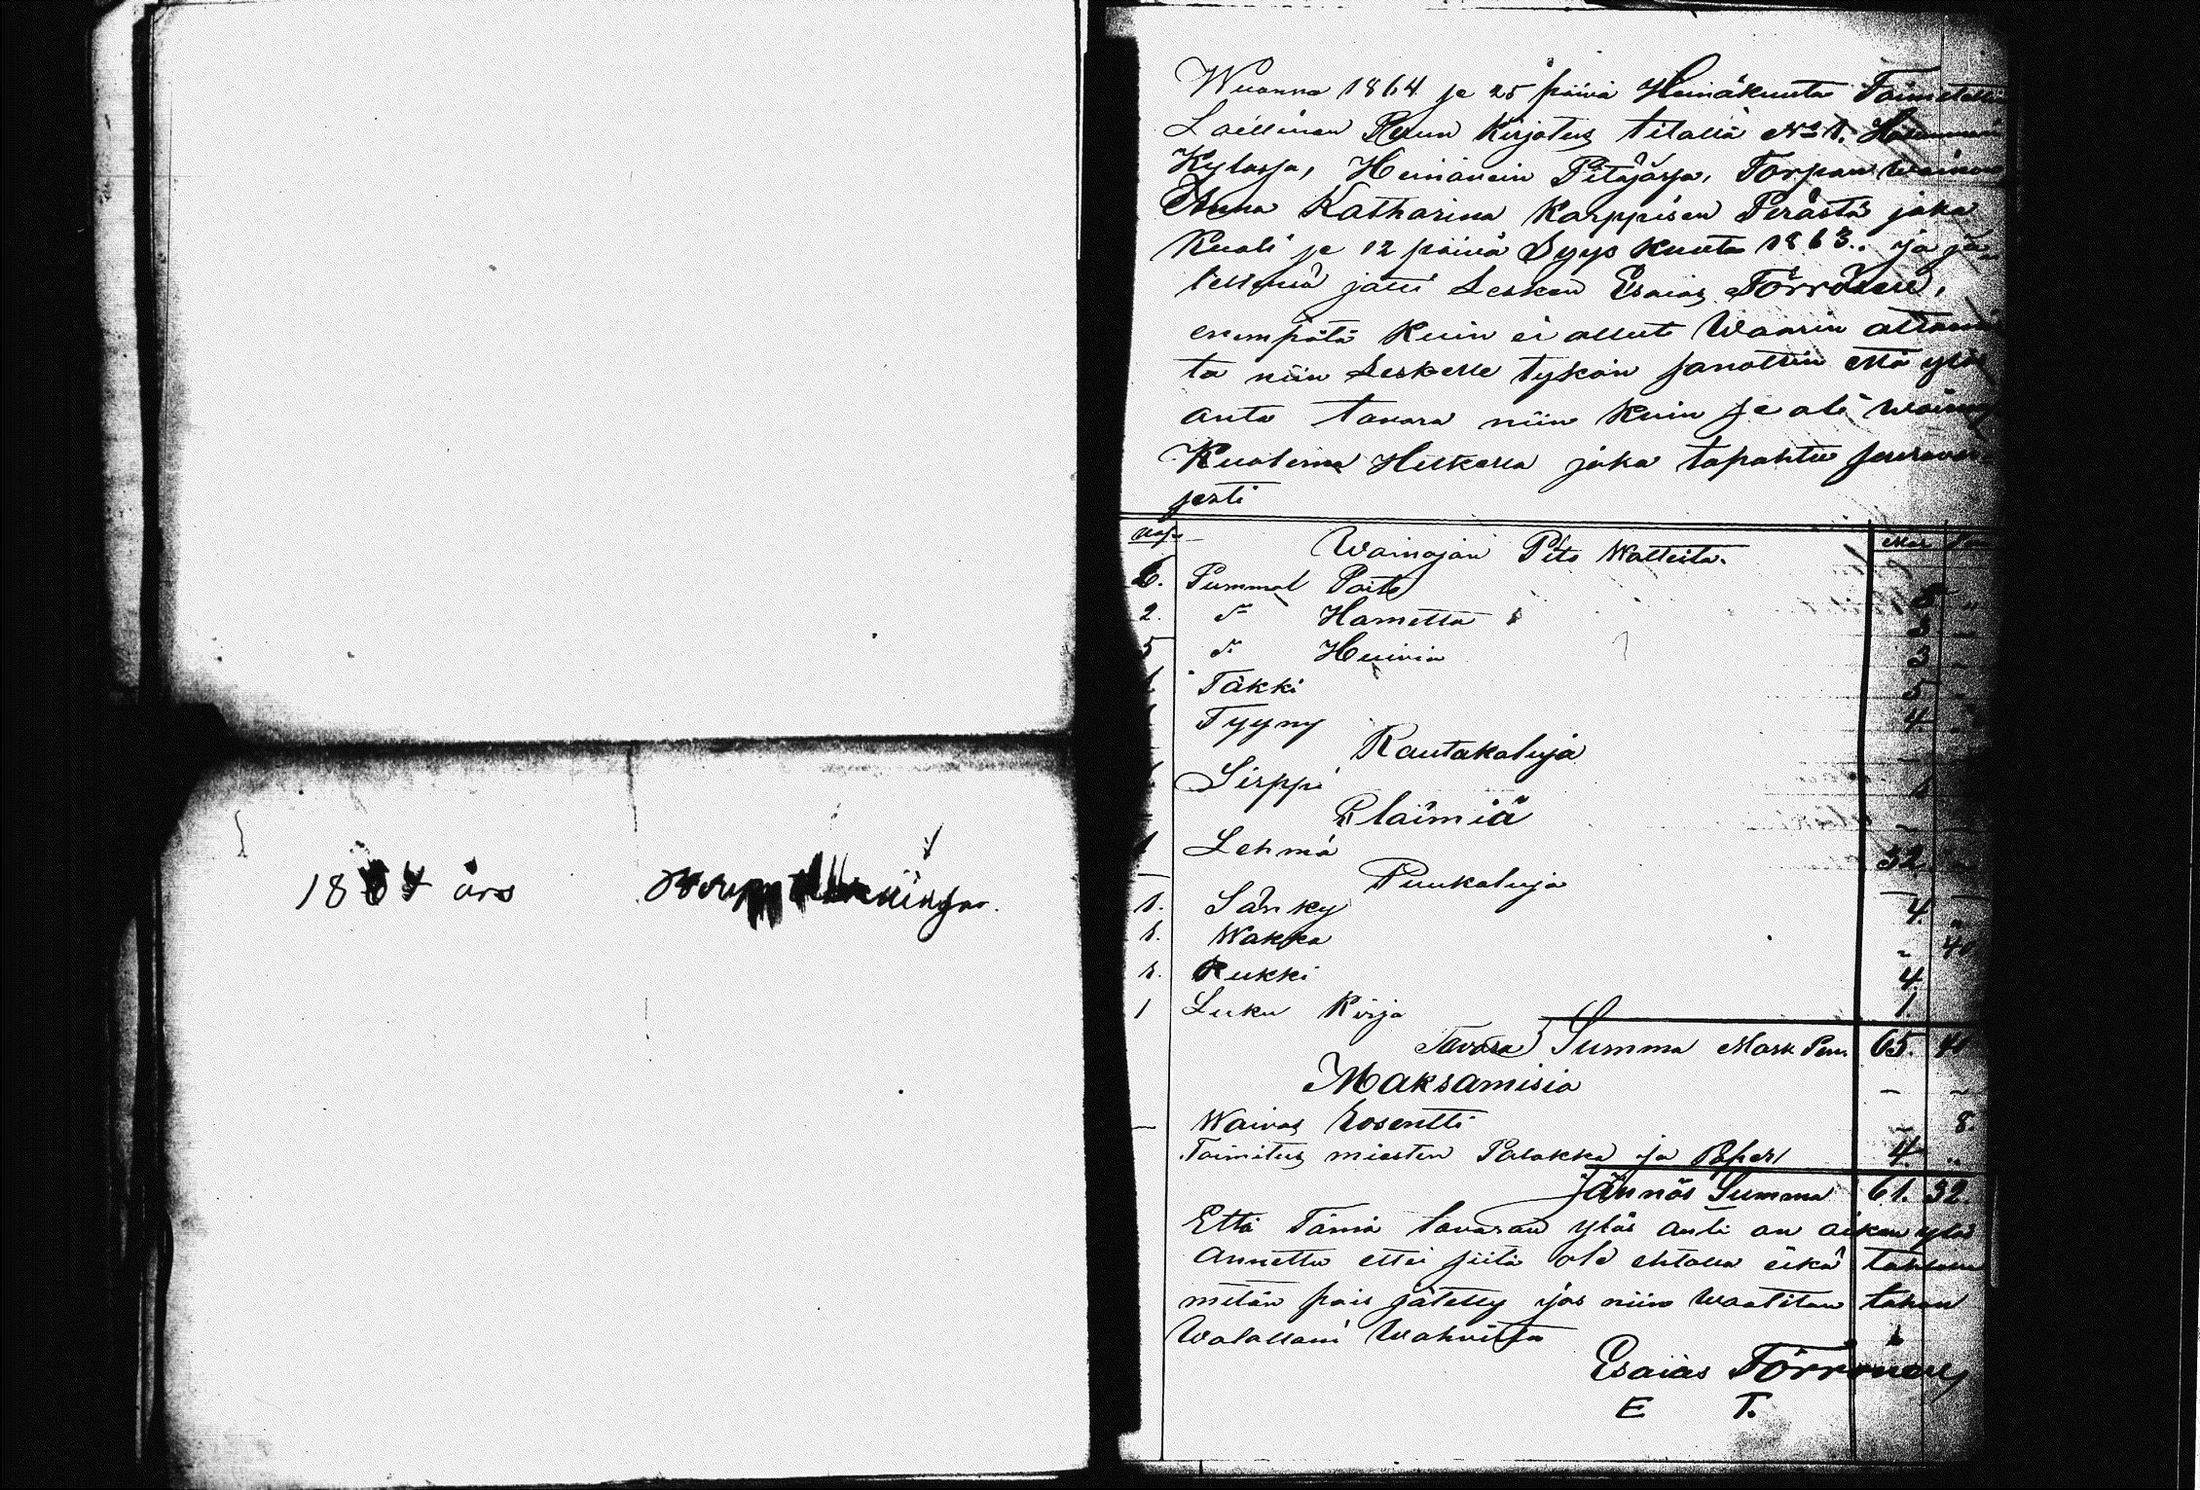 1864 års
Wuonna 1864 je 25 päivä Heinäkuuta Toimitettin
Laillinen Ruun Kirjotus tilalla No 1.
Kylasja, Heinävein Pitäjäsja, Torpan Waimon
Anna Katharina Karppisen Perästä joka
Kuoli je 12 päivä Syys kuuta 1863. ja jä-
lellensä jätti Lesken Esaias Törrösen,
enempätä Kuin ei ollut Waarin ottami
ta niin Leskelle tykön sanottin että ylös
anta tavara niin Kuin se oli waimon
Kuolema Hetkella joka tapahtu seurava-
sesti
Waimojan Pito Watteita.
6. Pummol Paito 5 "
2. d:o Hametta 3 -
5 d:o Huivia 3 -
1. Täkki 5 -
1 Tyyny 4 "
Rautakaluja -
1 Sirppi 1
Elaimiä -
1 Lehmä 32 "
Puukaluja
1. Sänky 4. "
1. Wakka - 40
1. Rukki 4
1 Luku Kirja 1.
Tavara Summa Mark Pen. 65. 40
Maksamisia - -
- Waivas Prosentti - 8.
Toimitus miesten Palakka ja Paperi 4. "
Jäännös Summa 61. 32
Että Tämä tavaran ylös anti on oiken ylös
annettu ettei siitä ole ehtolla eikä tahtolla
mitän pois jätetty jos niin Waaditan tahon
Walallani Wahvista
Esaias Törrönen
E T.